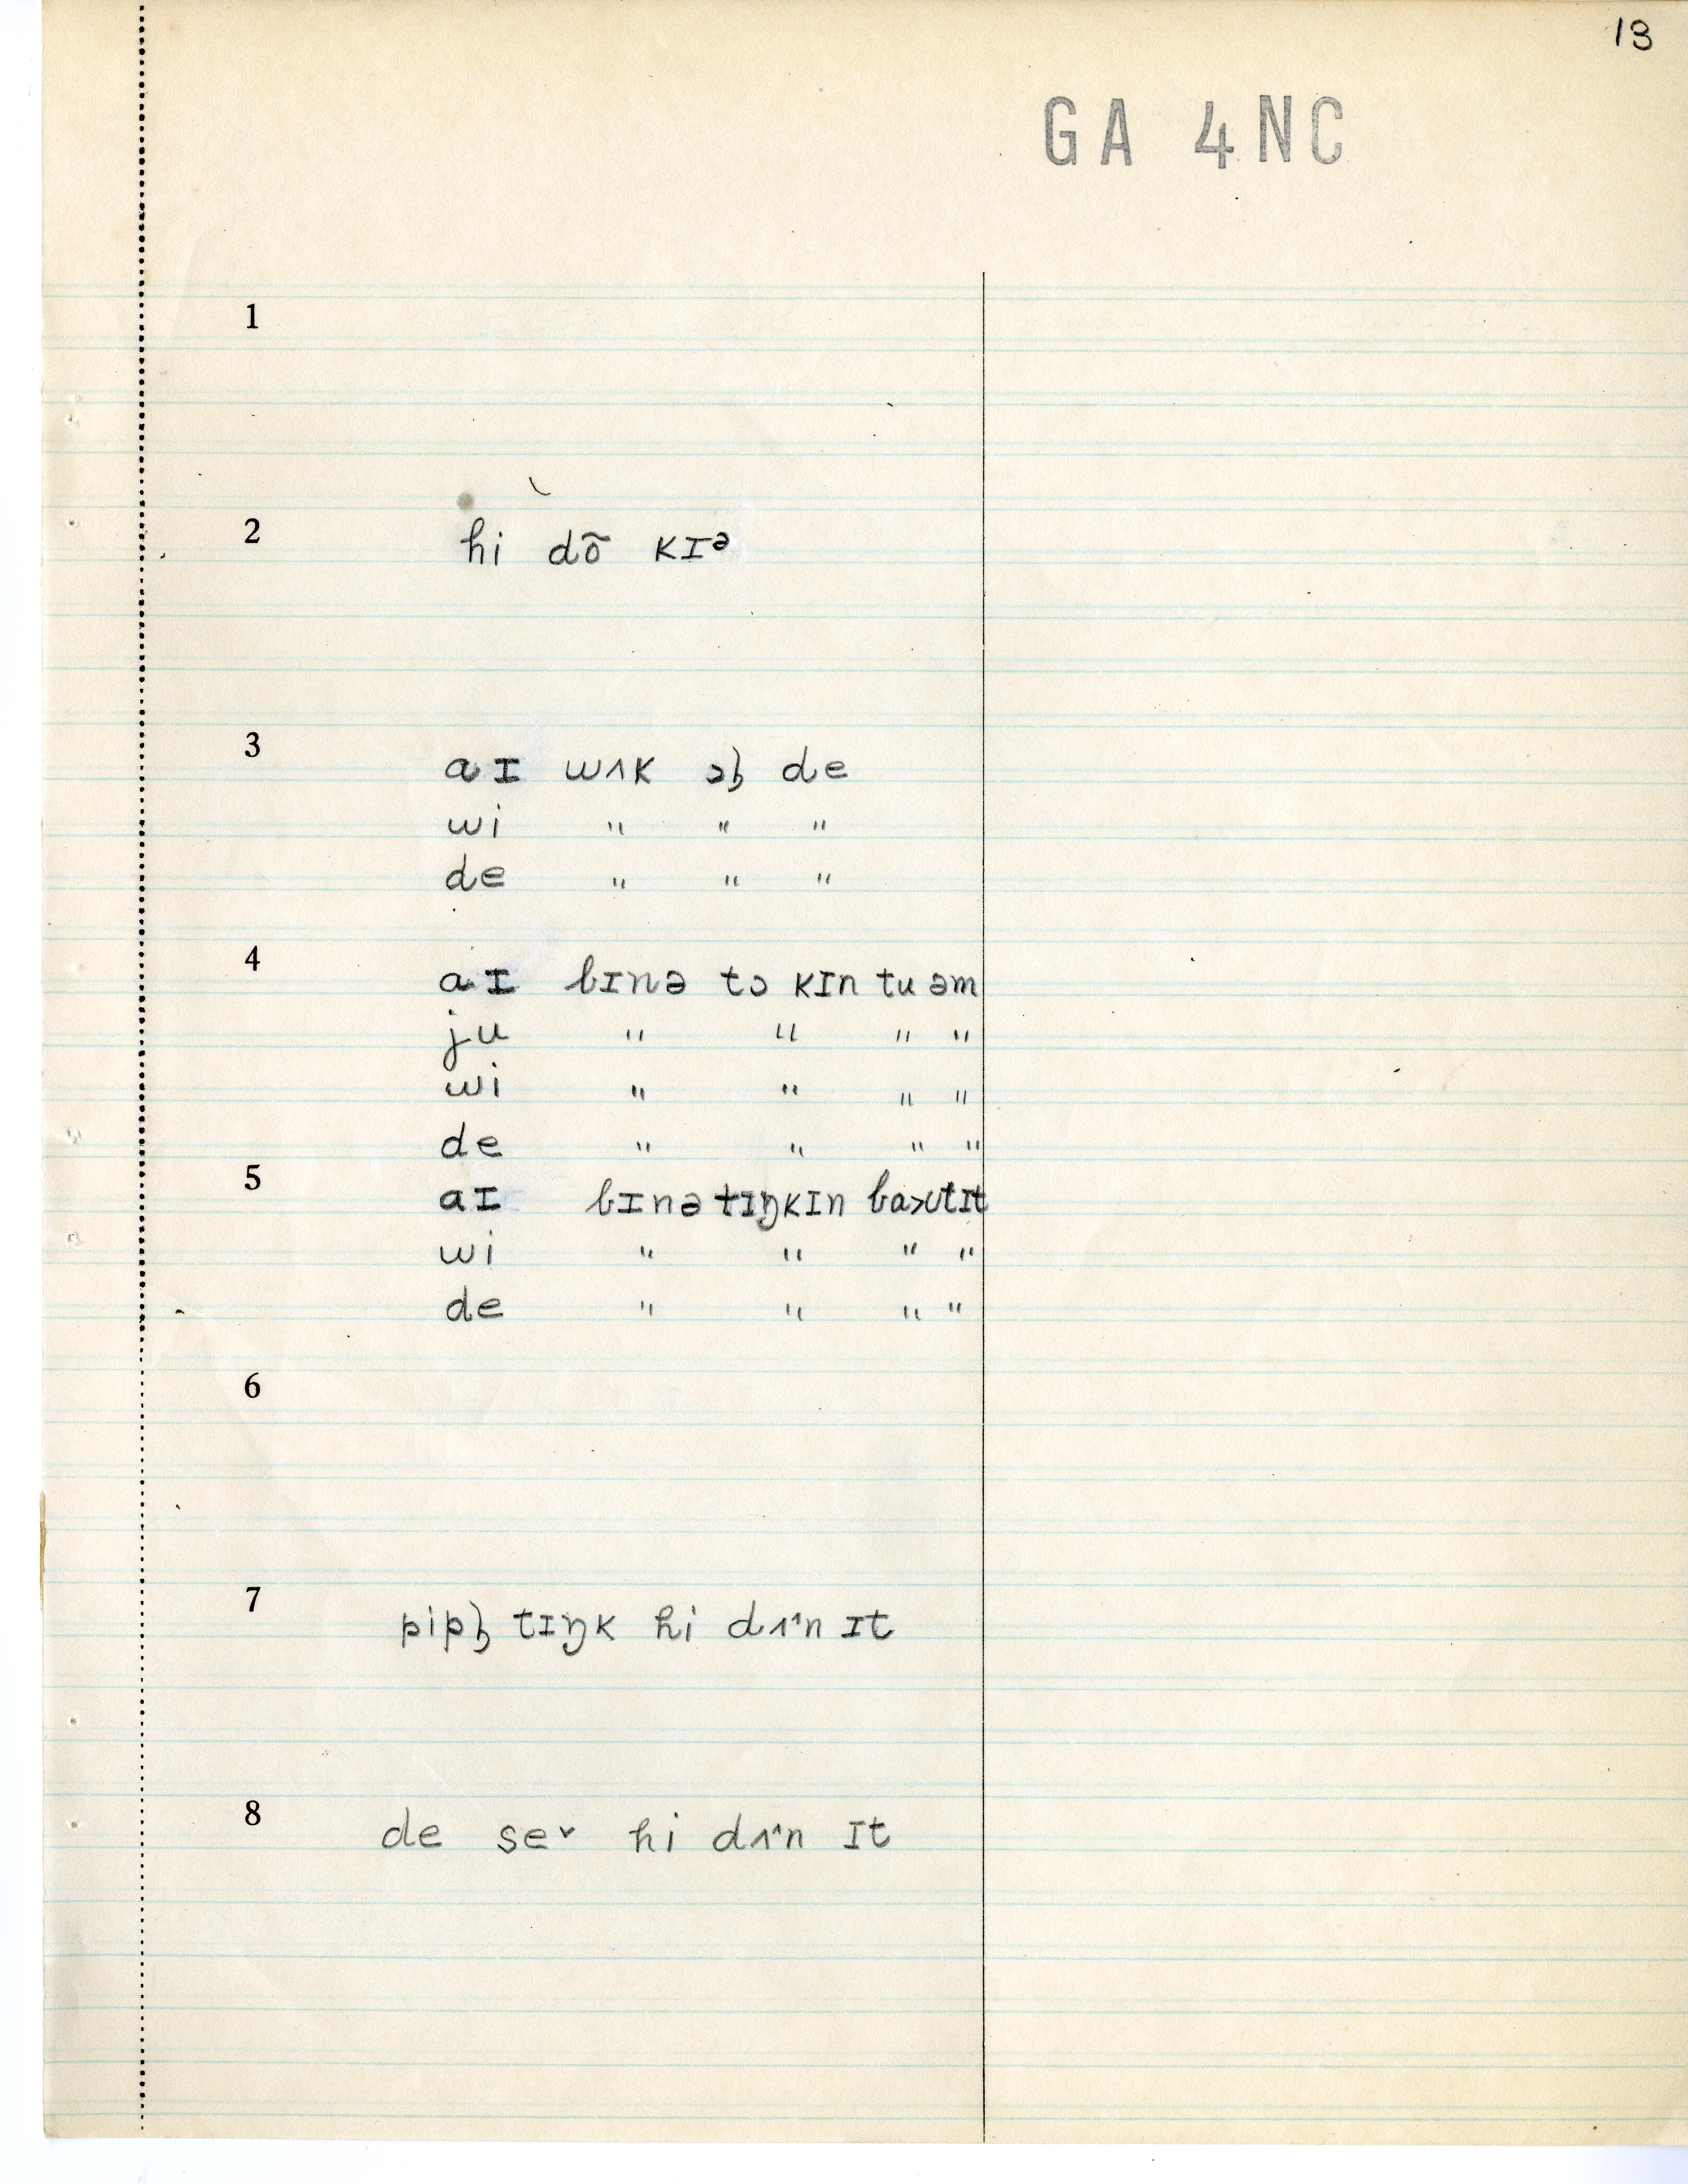 13
GA 4NC
1
2 hi dõ kɪᵊ
3 aɪ wʌk ɔl̩ de
wi " " "
de " " "
4 aɪ bɪnə tɔ kɪn tu əm
ju " " " "
wi " " " "
de " " " "
5 aɪ bɪnə tɪŋkɪn baʊtɪt
wi " " " "
de " " " "
6
7 pipl̩ tɪŋk hi dʌ^n ɪt
8 de se˅ hi dʌ^n ɪt